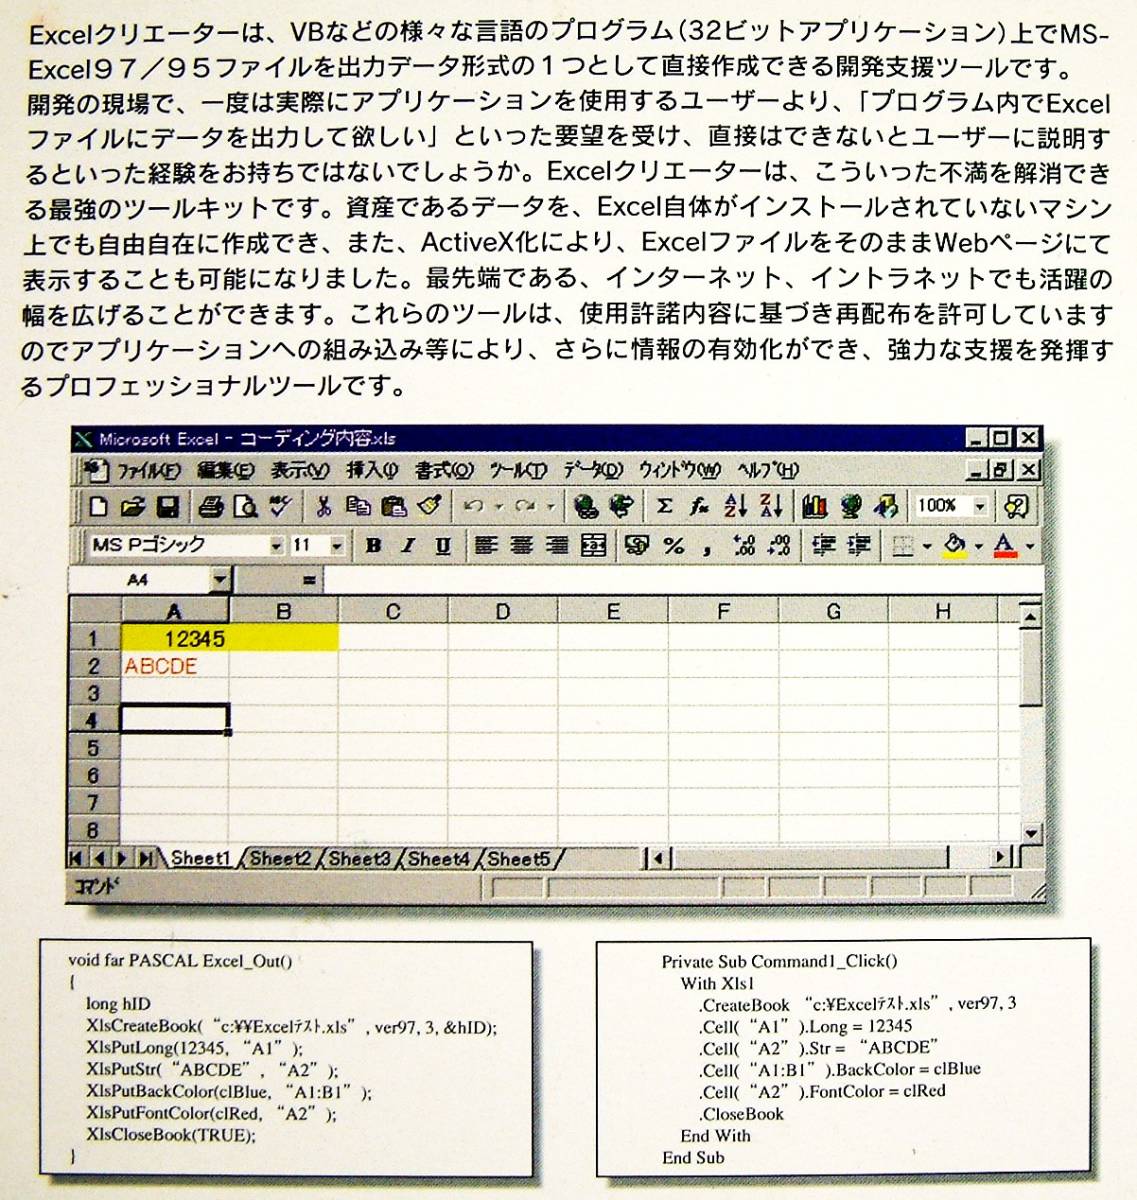 Excelクリエーターは、VBなどの様々な言語のプログラム(32ビットアプリケーション)上でMS-
Excel９７／９５ファイルを出力データ形式の１つとして直接作成できる開発支援ツールです。
開発の現場で、一度は実際にアプリケーションを使用するユーザーより、「プログラム内でExcel
ファイルにデータを出力して欲しい」といった要望を受け、直接はできないとユーザーに説明す
るといった経験をお持ちではないでしょうか。Excelクリエーターは、こういった不満を解消でき
る最強のツールキットです。資産であるデータを、Excel自体がインストールされていないマシン
上でも自由自在に作成でき、また、ActiveX化により、ExcelファイルをそのままWebページにて
表示することも可能になりました。最先端である、インターネット、イントラネットでも活躍の
幅を広げることができます。これらのツールは、使用許諾内容に基づき再配布を許可しています
のでアプリケーションへの組み込み等により、さらに情報の有効化ができ、強力な支援を発揮す
るプロフェッショナルツールです。
Microsoft Excel - コーディング内容.xls
ﾌｧｲﾙ(F) 編集(E) 表示(V) 挿入(I) 書式(O) ﾂｰﾙ(T) ﾃﾞｰﾀ(D) ｳｨﾝﾄﾞｳ(W) ﾍﾙﾌﾟ(H)
100%
MS Pゴシック 11 B I U % ,
A4 =
A B C D E F G H
1 12345
2 ABCDE
3
4
5
6
7
8
Sheet1 Sheet2 Sheet3 Sheet4 Sheet5
ｺﾏﾝﾄﾞ
void far PASCAL Excel_Out()
{
long hID
XlsCreateBook( “c:¥¥Excelﾃｽﾄ.xls” , ver97, 3, &hID);
XlsPutLong(12345, “A1” );
XlsPutStr( “ABCDE” , “A2” );
XlsPutBackColor(clBlue, “A1:B1” );
XlsPutFontColor(clRed, “A2” );
XlsCloseBook(TRUE);
}
Private Sub Command1_Click()
With Xls1
.CreateBook “c:¥Excelﾃｽﾄ.xls” , ver97, 3
.Cell( “A1” ).Long = 12345
.Cell( “A2” ).Str = “ABCDE”
.Cell( “A1:B1” ).BackColor = clBlue
.Cell( “A2” ).FontColor = clRed
.CloseBook
End With
End Sub